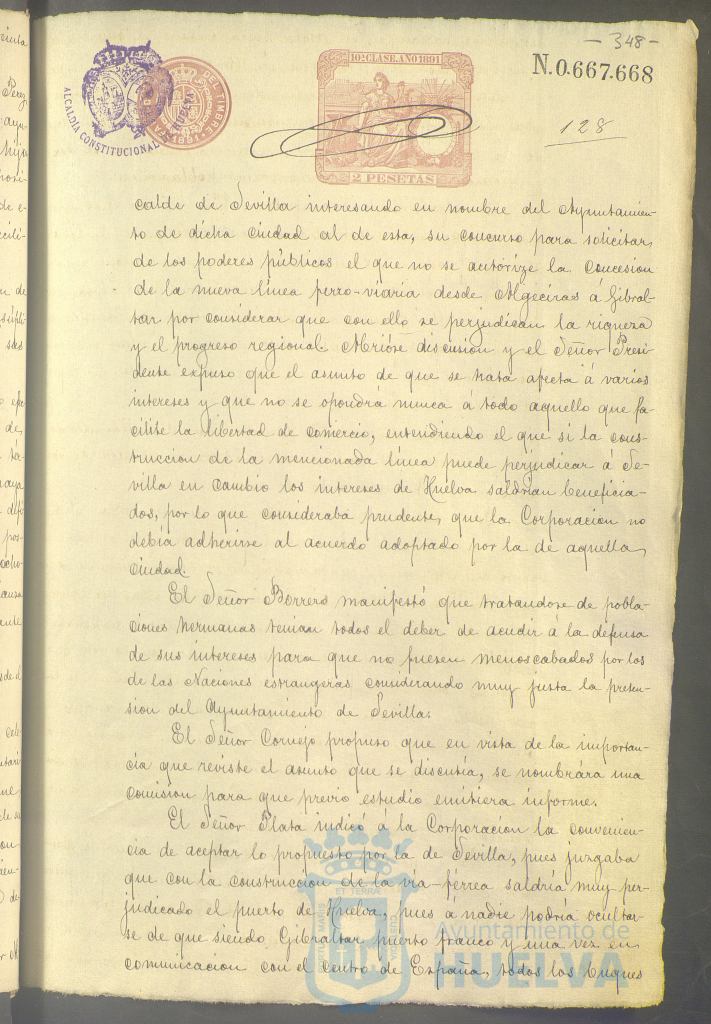 - 348 -
N.0.667.668
10ª CLASE. AÑO 1891
2 PESETAS
DEL TIMBRE
ALCALDÍA CONSTITUCIONAL
128
calde de Sevilla interesando en nombre del Ayuntamien-
to de dicha Ciudad al de esta, su concurso para solicitar,
de los poderes públicos el que no se autorize la Concesion
de la nueva línea ferro-viaria desde Algeciras á Gibral-
tar por considerar que con ello se perjudican la riqueza
y el progreso regional. Abrióse discusión y el Señor Presi-
dente expuso que el asunto de que se trata afecta á varios
intereses y que no se opondrá nunca á todo aquello que fa-
cilite la libertad de comercio, entendiendo el que si la cons-
truccion de la mencionada línea puede perjudicar á Se-
villa en cambio los intereses de Huelva saldrian beneficia-
dos, por lo que consideraba prudente, que la Corporacion no
debia adherirse al acuerdo adoptado por la de aquella
Ciudad.
El Señor Borrero manifestó que tratandose de pobla-
ciones hermanas tenian todos el deber de acudir á la defensa
de sus intereses para que no fuesen menoscabados por los
de las Naciones estrangeras considerando muy justa la preten-
sion del Ayuntamiento de Sevilla.
El Señor Cornejo propuso que en vista de la importan-
cia que reviste el asunto que se discutia, se nombrára una
comision para que previo estudio emitiera informe.
El Señor Plata indicó á la Corporacion la convenien-
cia de aceptar lo propuesto por la de Sevilla, pues juzgaba
que con la construccion de la vía-ferrea saldría muy per-
judicado el puerto de Huelva, pues á nadie podría ocultar-
se de que siendo Gibraltar puerto franco y una vez en
comunicacion con el centro de España, todos los buques
Ayuntamiento de
HUELVA